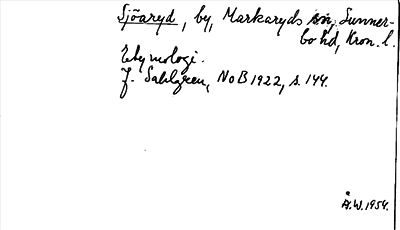 Sjöaryd, by, Markaryds sn, Sunner-
bo hd, Kron. l.
Etymologi.
J. Sahlgren, NoB 1922, s. 144.
Å.W. 1954.